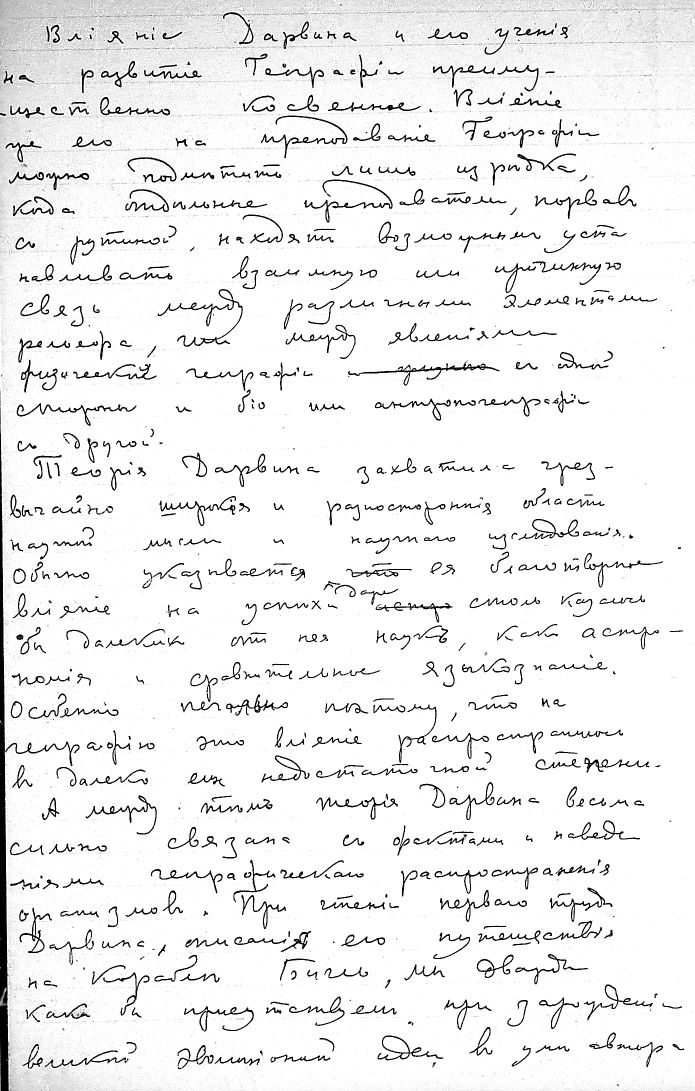 Вліяніе Дарвина и его ученія
на развитіе Географіи преиму-
щественно косвенное. Вліяніе
же его на преподаваніе Географіи
можно подмѣтить лишь изрѣдка,
когда отдѣльные преподаватели, порвавъ
съ рутиной, находятъ возможнымъ уста
навливать взаимную или причинную
связь между различными элементами
рельефа, или между явленіями
физической географіи съ одной
стороны и біо или антропогеографіи
съ другой.
Теорія Дарвина захватила чрез-
вычайно широкія и разностороннія области
научной мысли и научного изслѣдованія.
Обычно указывается что ея благотворное
вліяніе на успѣхи даже столь казалось
бы далекихъ отъ нея наукъ, какъ астро-
номія и сравнительное языкознаніе.
Особенно печально поэтому, что на
географію это вліяніе распространилось
въ далеко еще недостаточной степени.
А между тѣмъ теорія Дарвина весьма
сильно связана съ фактами и наведе
ніями географическаго распространенія
организмовъ. При чтеніи перваго труда
Дарвина, описанія его путешествія
на Кораблѣ Бигль, мы дважды
какъ бы присутствуемъ при зарожденіи
великой эволюціонной идеи въ умѣ автора